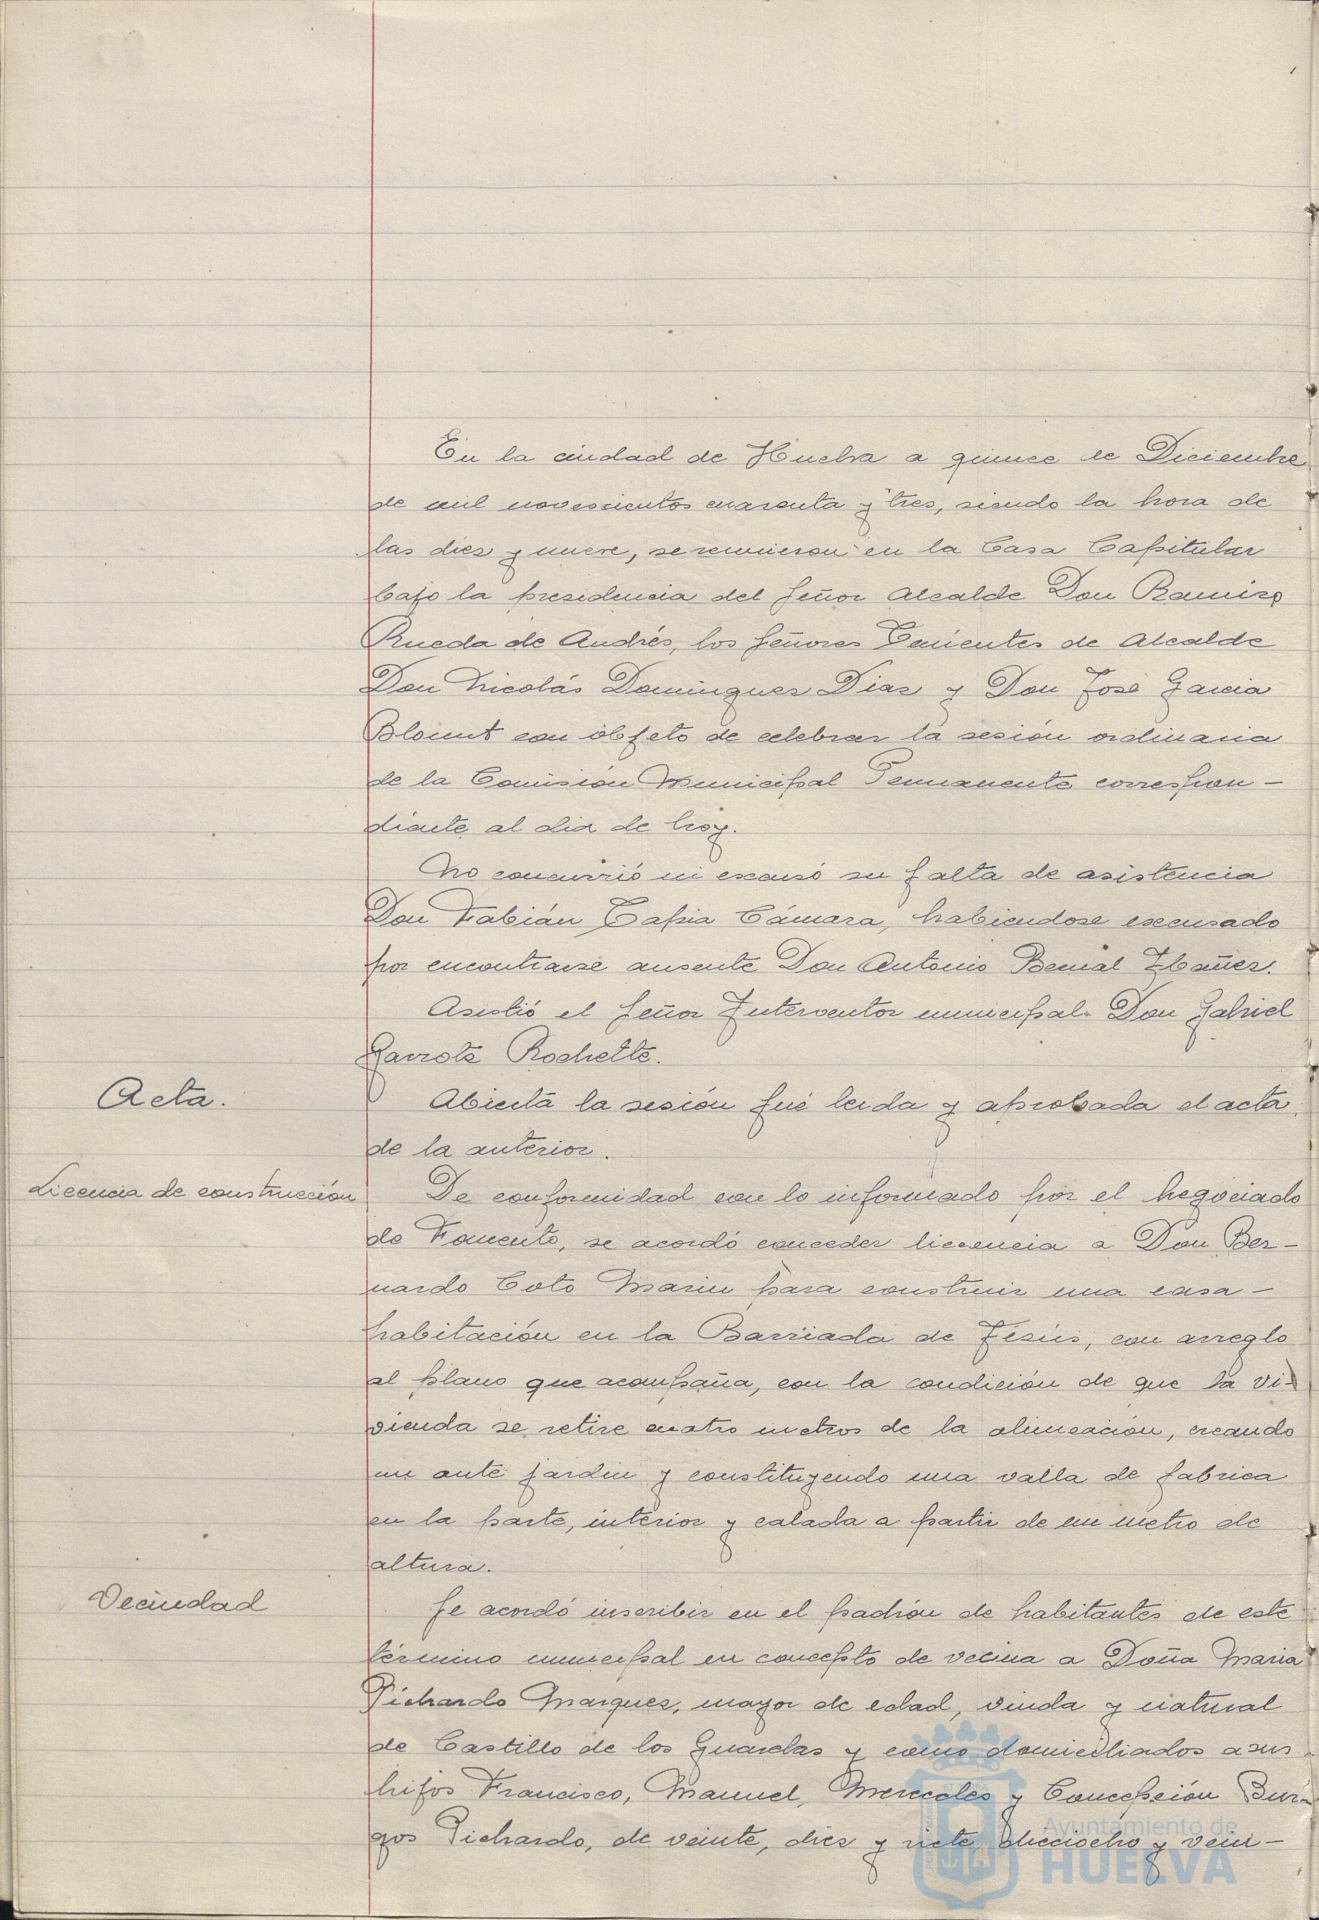 En la ciudad de Huelva a quince de Diciembre
de mil novescientos cuarenta y tres, siendo la hora de
las diez y nueve, se reunieron en la Casa Capitular
bajo la presidencia del Señor Alcalde Don Ramiro
Rueda de Andrés, los Señores Tenientes de Alcalde
Don Nicolás Dominguez Diaz y Don José Garcia
Blount con objeto de celebrar la sesión ordinaria
de la Comisión Municipal Permanente correspon-
diente al dia de hoy.
No concurrió ni excusó su falta de asistencia
Don Fabián Tapia Cámara, habiendose excusado
por encontrarse ausente Don Antonio Bernal Ibañez.
Asistió el Señor Interventor municipal Don Gabriel
Garrote Rochette.
Acta.
Abierta la sesión fué leida y aprobada el acta
de la anterior.
Licencia de construcción
De conformidad con lo informado por el Negociado
de Fomento, se acordó conceder licencia a Don Ber-
nardo Coto Marin para construir una casa-
habitación en la Barriada de Jesús, con arreglo
al plano que acompaña, con la condición de que la vi-
vienda se retire cuatro metros de la alineación, creando
un ante jardin y constituyendo una valla de fabrica
en la parte, interior y calada a partir de un metro de
altura.
Vecindad
Se acordó inscribir en el padrón de habitantes de este
término municipal en concepto de vecina a Doña Maria
Pichardo Marquez, mayor de edad, viuda y natural
de Castillo de los Guardas y como domiciliados a sus
hijos Francisco, Manuel, Mercedes y Concepción Bur-
gos Pichardo, de veinte, diez y siete dieciocho y vein-
Ayuntamiento de
HUELVA